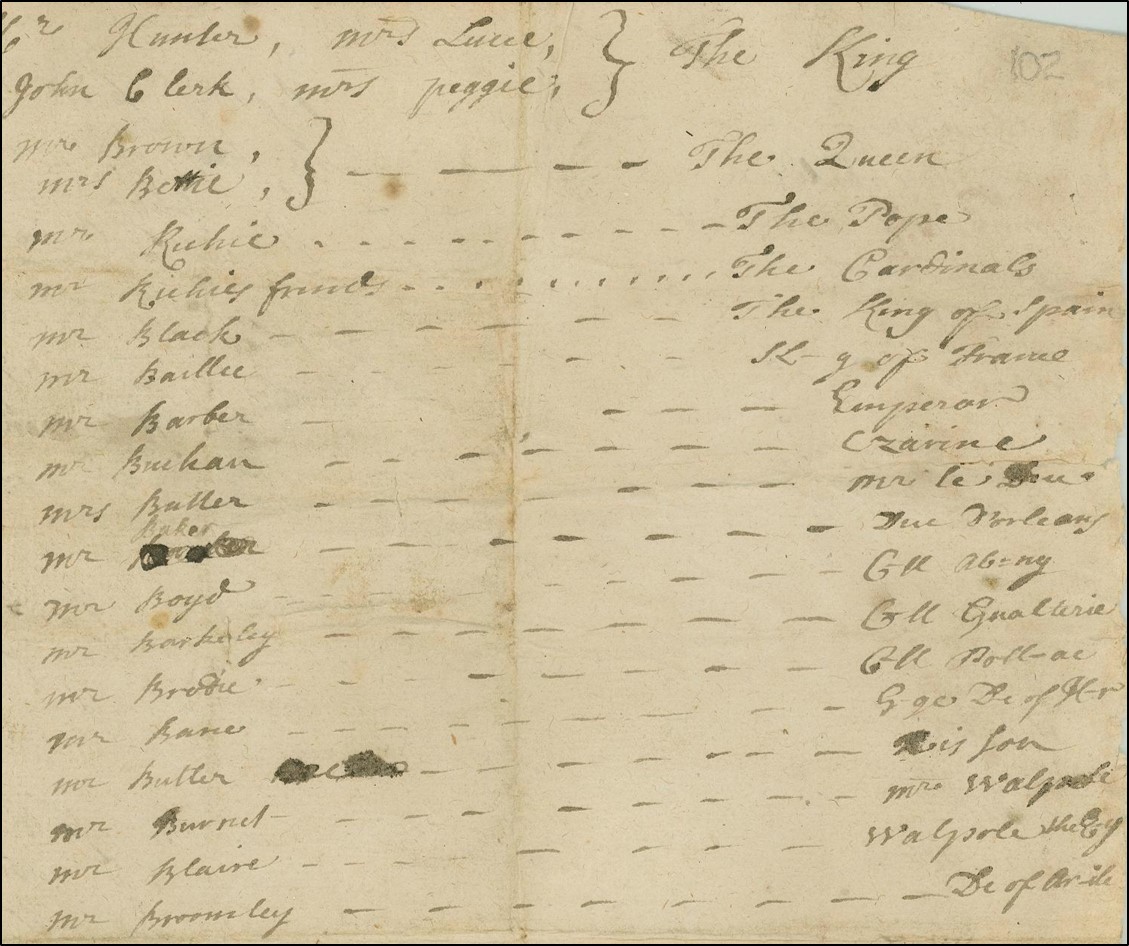 Mr Hunter, mrs Lucie, } The King
John Clerk, mrs peggie, 102
mr Brown, } The Queen
mrs Bettie,
mr Richie - - - - - - - - - The Pope
mr Richies friends - - - - - - - - - The Cardinals
mr Black - - - - - - The King of Spain
mr Baillie - - - - - - K-g of France
mr Barber - - - - Emperor
mr Buchan - - - - - - - Czarine
mrs Butler - - - - - - - mr le Duc
Baker
mr - - - - - - - - Duc Dorleans
mr Boyd - - - - - - - Cll Ab=ny
mr Barkeley - - - - - - - - Cll Gualterie
mr Brodie - - - - - - - - Cll Poll-ac
mr Bane - - - - - - - G ge De of H-r
mr Butler - - - - - - His son
mr Burnet - - - - - - - mr Walpole
mr Blair - - - - - - - Walpole the
mr Broomley - - - - - - - - De of Ar-ile